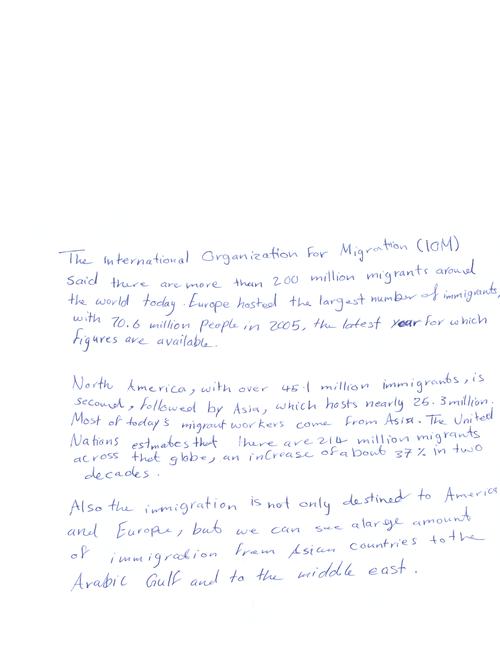 The International Organization For Migration (IOM)
said there are more than 200 million migrants around
the world today. Europe hosted the largest number of immigrants,
with 70.6 million people in 2005, the latest year for which
figures are available.
North America, with over 45.1 million immigrants, is
second, followed by Asia, which hosts nearly 25.3 million.
Most of today's migrant workers come from Asia. The United
Nations estimates that there are 214 million migrants
across that globe, an increase of about 37% in two
decades.
Also the immigration is not only destined to America
and Europe, but we can see a large amount
of immigration from Asian countries to the
Arabic Gulf and to the middle east.